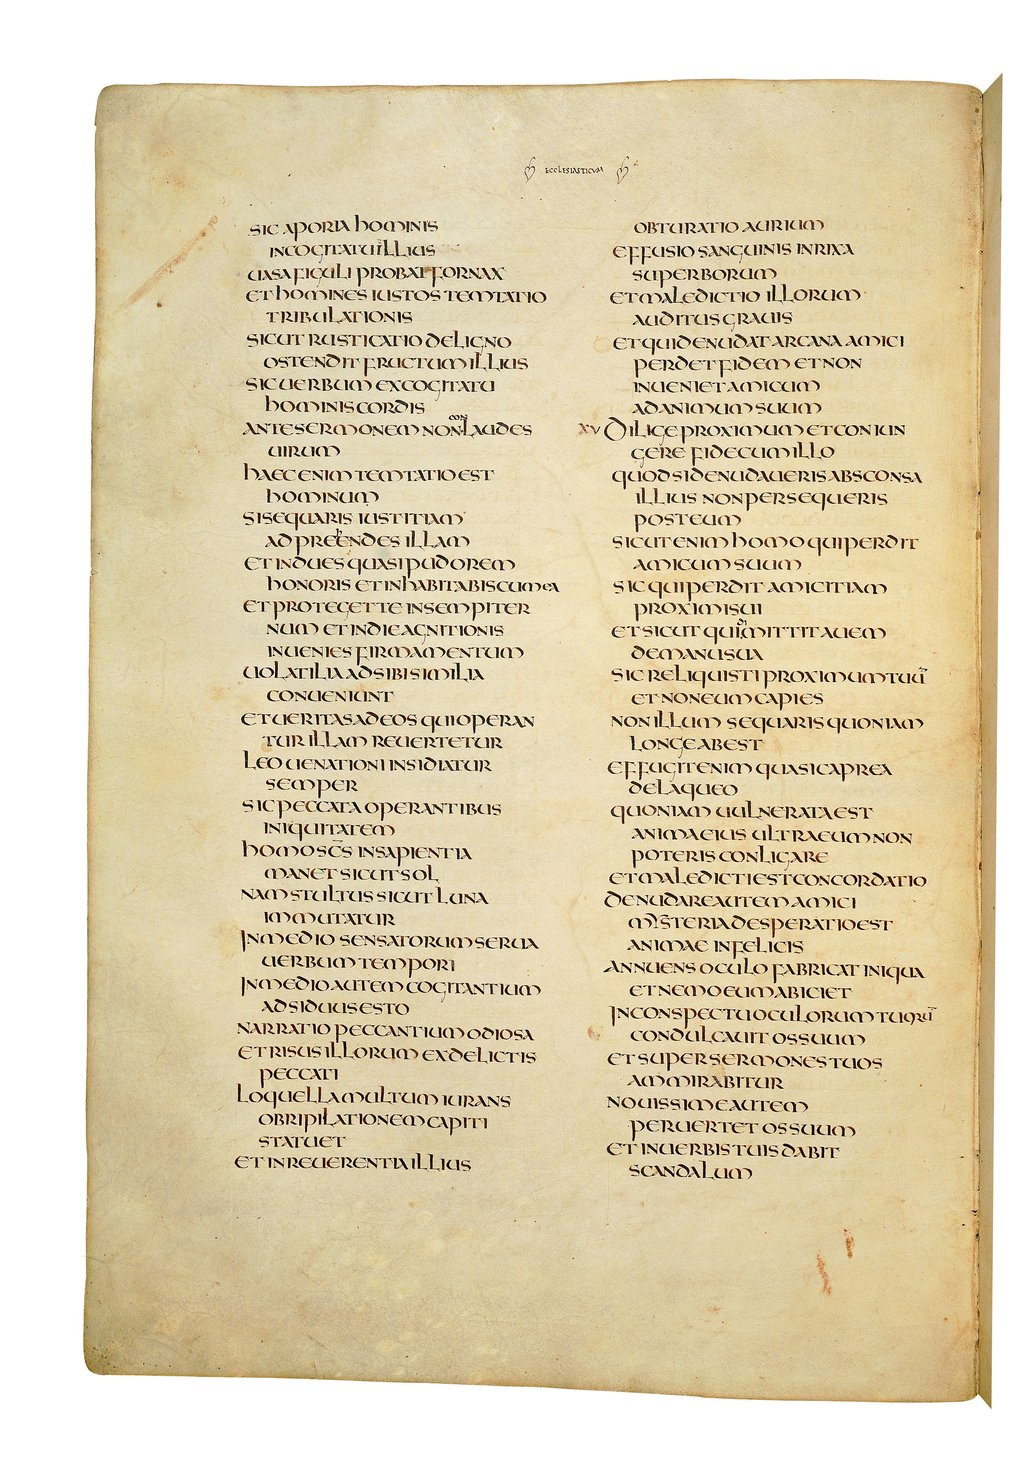 ECCLESIASTICUM
SIC APORIA HOMINIS
IN COGITATU ILLIUS
UASA FIGULI PROBAT FORNAX
ET HOMINES IUSTOS TEMTATIO
TRIBULATIONIS
SICUT RUSTICATIO DE LIGNO
OSTENDIT FRUCTUM ILLIUS
SIC UERBUM EX COGITATU
HOMINIS CORDIS
ANTE SERMONEM NON CONLAUDES
UIRUM
HAEC ENIM TEMTATIO EST
HOMINUM
SI SEQUARIS IUSTITIAM
ADPREHENDES ILLAM
ET INDUES QUASI PUDOREM
HONORIS ET INHABITABIS CUM EA
ET PROTEGET TE IN SEMPITER
NUM ET IN DIE AGNITIONIS
INUENIES FIRMAMENTUM
UOLATILIA AD SIBI SIMILIA
CONUENIUNT
ET UERITAS AD EOS QUI OPERAN
TUR ILLAM REUERTETUR
LEO UENATIONI INSIDIATUR
SEMPER
SIC PECCATA OPERANTIBUS
INIQUITATEM
HOMO SC̅S IN SAPIENTIA
MANET SICUT SOL
NAM STULTUS SICUT LUNA
IMMUTATUR
IN MEDIO SENSATORUM SERUA
UERBUM TEMPORI
IN MEDIO AUTEM COGITANTIUM
ADSIDUUS ESTO
NARRATIO PECCANTIUM ODIOSA
ET RISUS ILLORUM EX DELICTIS
PECCATI
LOQUELLA MULTUM IURANS
OBRIPILATIONEM CAPITI
STATUET
ET INREUERENTIA ILLIUS
OBTURATIO AURIUM
EFFUSIO SANGUINIS IN RIXA
SUPERBORUM
ET MALEDICTIO ILLORUM
AUDITUS GRAUIS
ET QUI DENUDAT ARCANA AMICI
PERDET FIDEM ET NON
INUENIET AMICUM
AD ANIMUM SUUM
XV DILIGE PROXIMUM ET CONIUN
GERE FIDE CUM ILLO
QUOD SI DENUDAUERIS ABSCONSA
ILLIUS NON PERSEQUERIS
POST EUM
SICUT ENIM HOMO QUI PERDIT
AMICUM SUUM
SIC QUI PERDIT AMICITIAM
PROXIMI SUI
ET SICUT QUI DIMITTIT AUEM
DE MANU SUA
SIC RELIQUISTI PROXIMUM TUU̅
ET NON EUM CAPIES
NON ILLUM SEQUARIS QUONIAM
LONGE ABEST
EFFUGIT ENIM QUASI CAPREA
DE LAQUEO
QUONIAM UULNERATA EST
ANIMA EIUS ULTRA EUM NON
POTERIS CONLIGARE
ET MALEDICTI EST CONCORDATIO
DENUDARE AUTEM AMICI
MYSTERIA DESPERATIO EST
ANIMAE INFELICIS
ANNUENS OCULO FABRICAT INIQUA
ET NEMO EUM ABICIET
IN CONSPECTU OCULORUM TUORU̅
CONDULCAUIT OS SUUM
ET SUPER SERMONES TUOS
AMMIRABITUR
NOUISSIME AUTEM
PERUERTET OS SUUM
ET IN UERBIS TUIS DABIT
SCANDALUM